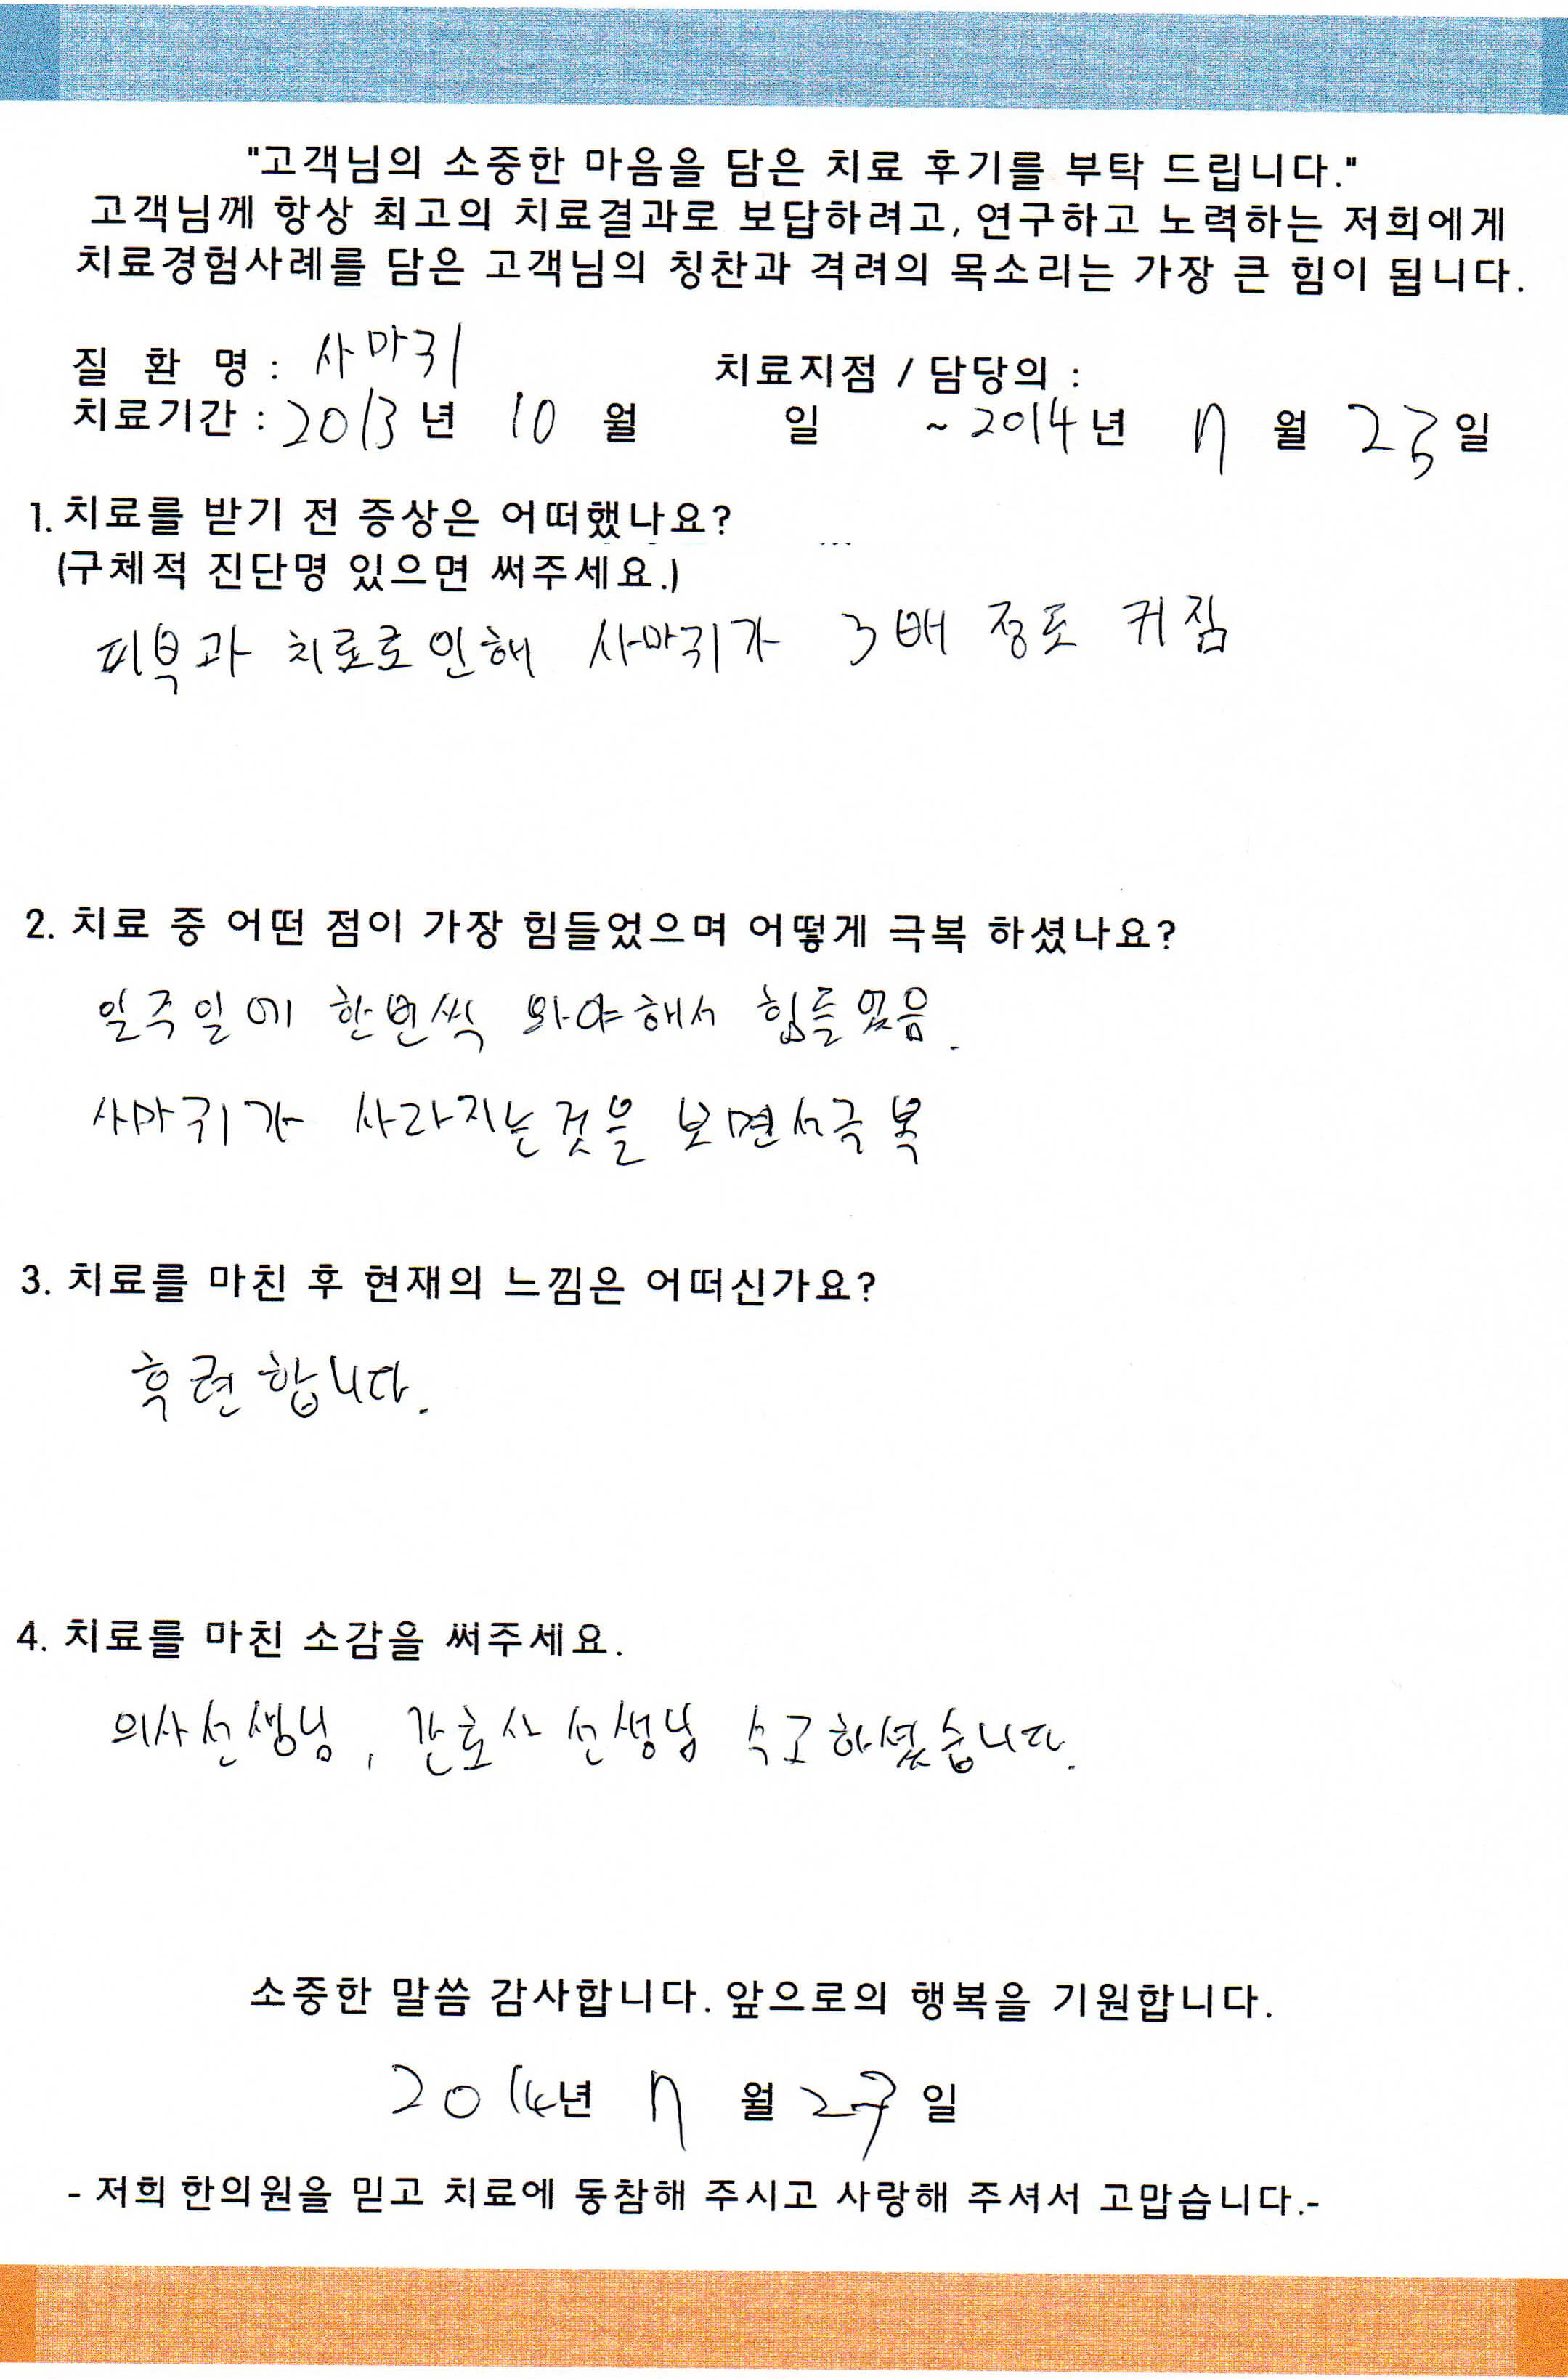 "고객님의 소중한 마음을 담은 치료 후기를 부탁 드립니다."
고객님께 항상 최고의 치료결과로 보답하려고, 연구하고 노력하는 저희에게
치료경험사례를 담은 고객님의 칭찬과 격려의 목소리는 가장 큰 힘이 됩니다.
질 환 명 : 사마귀 치료지점 / 담당의 :
치료기간 : 2013 년 10 월 일 ~ 2014 년 7 월 일
1. 치료를 받기 전 증상은 어떠했나요?
(구체적 진단명 있으면 써주세요.)
피부과 치료로인해 사마귀가 3배 정도 커짐
2. 치료 중 어떤 점이 가장 힘들었으며 어떻게 극복 하셨나요?
일주일에 한번씩 와야해서 힘들었음.
사마귀가 사라지는것을 보면서극복
3. 치료를 마친 후 현재의 느낌은 어떠신가요?
후련합니다.
4. 치료를 마친 소감을 써주세요.
의사선생님, 간호사선생님 수고하셨습니다.
소중한 말씀 감사합니다. 앞으로의 행복을 기원합니다.
2014년 7 월 일
- 저희 한의원을 믿고 치료에 동참해 주시고 사랑해 주셔서 고맙습니다.-